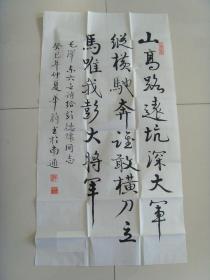 山高路遠坑深大軍
縱橫馳奔誰敢橫刀立
馬唯我彭大將軍
毛澤東六言詩給彭德懷同志
癸巳年仲夏書於南通